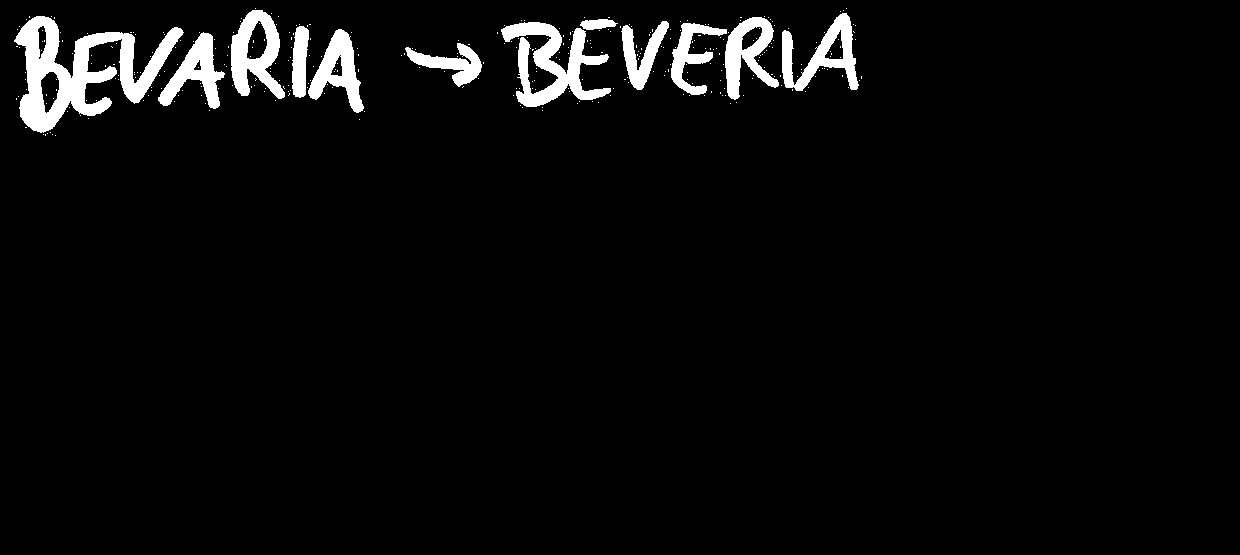 BEVARIA → BEVERIA